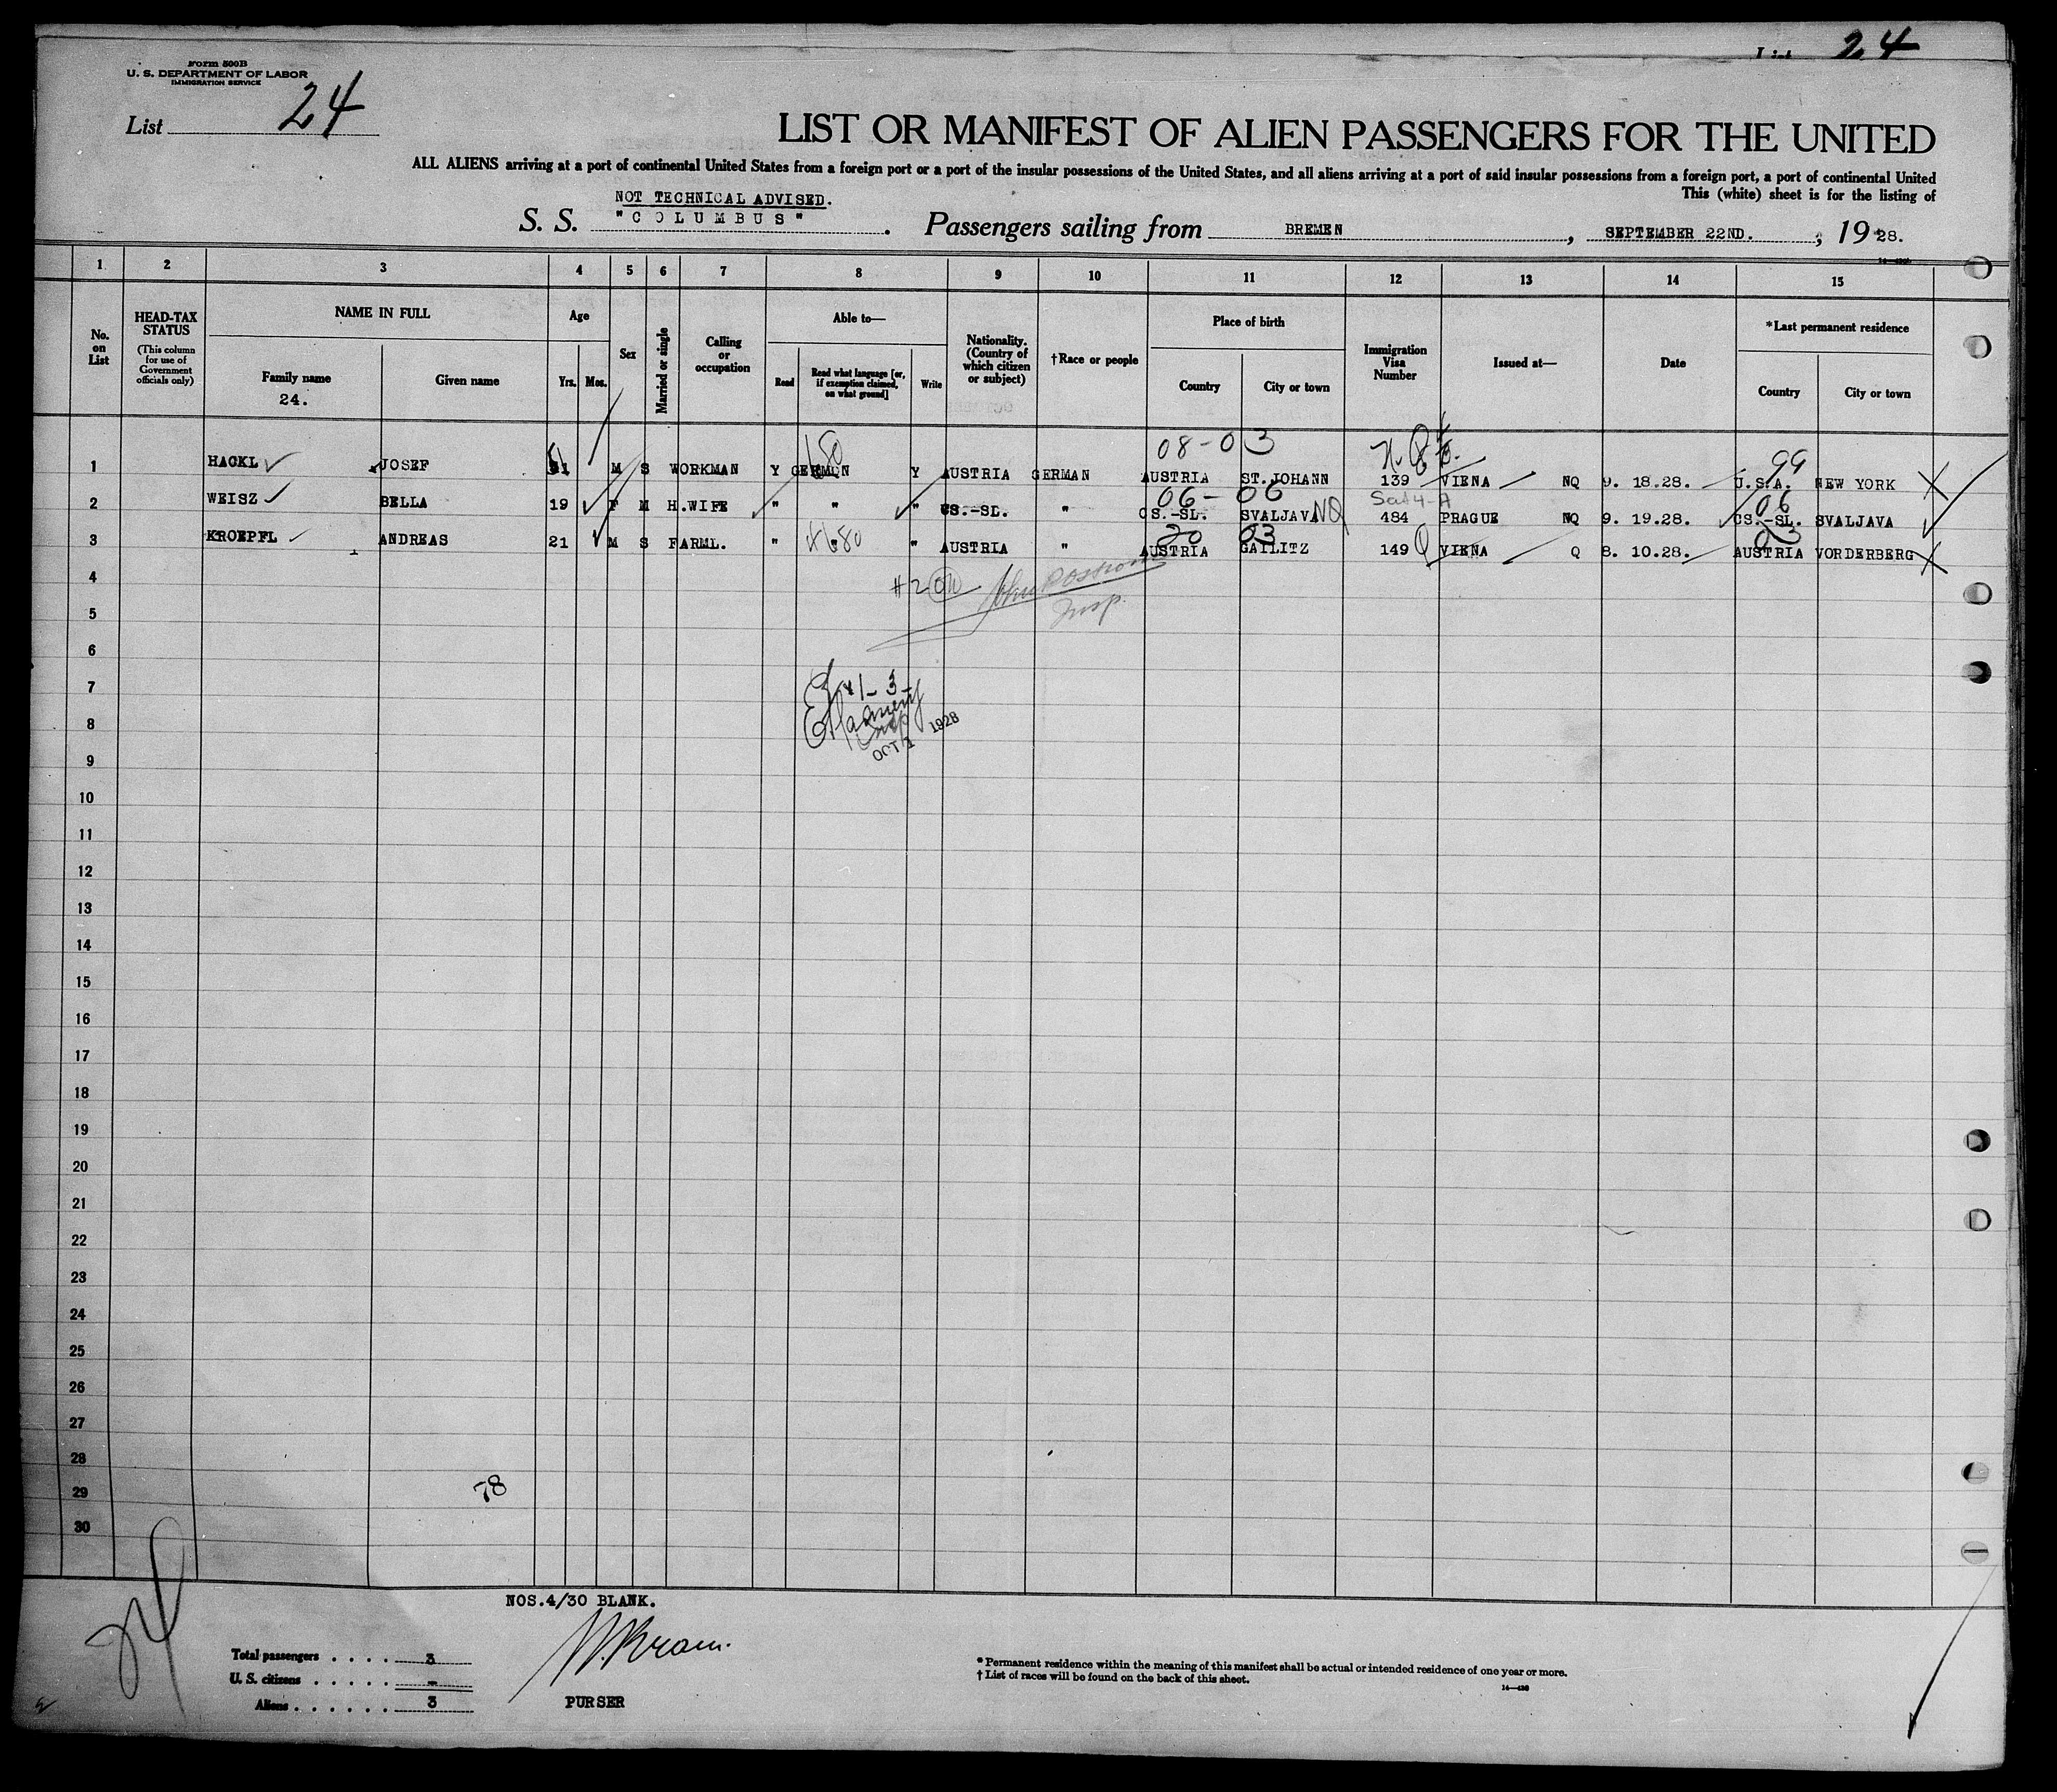 List 24
Form 500B
U. S. DEPARTMENT OF LABOR
IMMIGRATION SERVICE
List 24
LIST OR MANIFEST OF ALIEN PASSENGERS FOR THE UNITED
ALL ALIENS arriving at a port of continental United States from a foreign port or a port of the insular possessions of the United States, and all aliens arriving at a port of said insular possessions from a foreign port, a port of continental United
This (white) sheet is for the listing of
NOT TECHNICAL ADVISED.
S. S. "COLUMBUS". Passengers sailing from BREMEN, SEPTEMBER 22ND., 1928.
1 2 3 4 5 6 7 8 9 10 11 12 13 14 15
No. on List
HEAD-TAX STATUS
(This column for use of Government officials only)
NAME IN FULL
Family name
24.
Given name
Age
Yrs. Mos.
Sex
Married or single
Calling or occupation
Able to—
Read
Read what language [or, if exemption claimed, on what ground]
Write
Nationality. (Country of which citizen or subject)
†Race or people
Place of birth
Country
City or town
Immigration Visa Number
Issued at—
Date
*Last permanent residence
Country
City or town
680 08-03 99
1 HACKL JOSEF M S WORKMAN Y GERMAN Y AUSTRIA GERMAN AUSTRIA ST.JOHANN 139 VIENA NQ 9. 18.28. U.S.A. NEW YORK
06-06 06
2 WEISZ BELLA 19 F M H.WIFE " " " CS.-SL. " CS.-SL. SVALJAVA NQ 484 PRAGUE NQ 9. 19.28. CS.-SL. SVALJAVA
20 03 03
3 KROEPFL ANDREAS 21 M S FARML. " " AUSTRIA " AUSTRIA GAILITZ 149 Q VIENA Q 8. 10.28. AUSTRIA VORDERBERG
4
#2 Insp.
5
6
7
#1-3-
8
Insp
OCT 1 1928
9
10
11
12
13
14
15
16
17
18
19
20
21
22
23
24
25
26
27
28
29
78
30
NOS.4/30 BLANK.
24
Total passengers 3
U. S. citizens -
Aliens 3
PURSER
* Permanent residence within the meaning of this manifest shall be actual or intended residence of one year or more.
† List of races will be found on the back of this sheet.